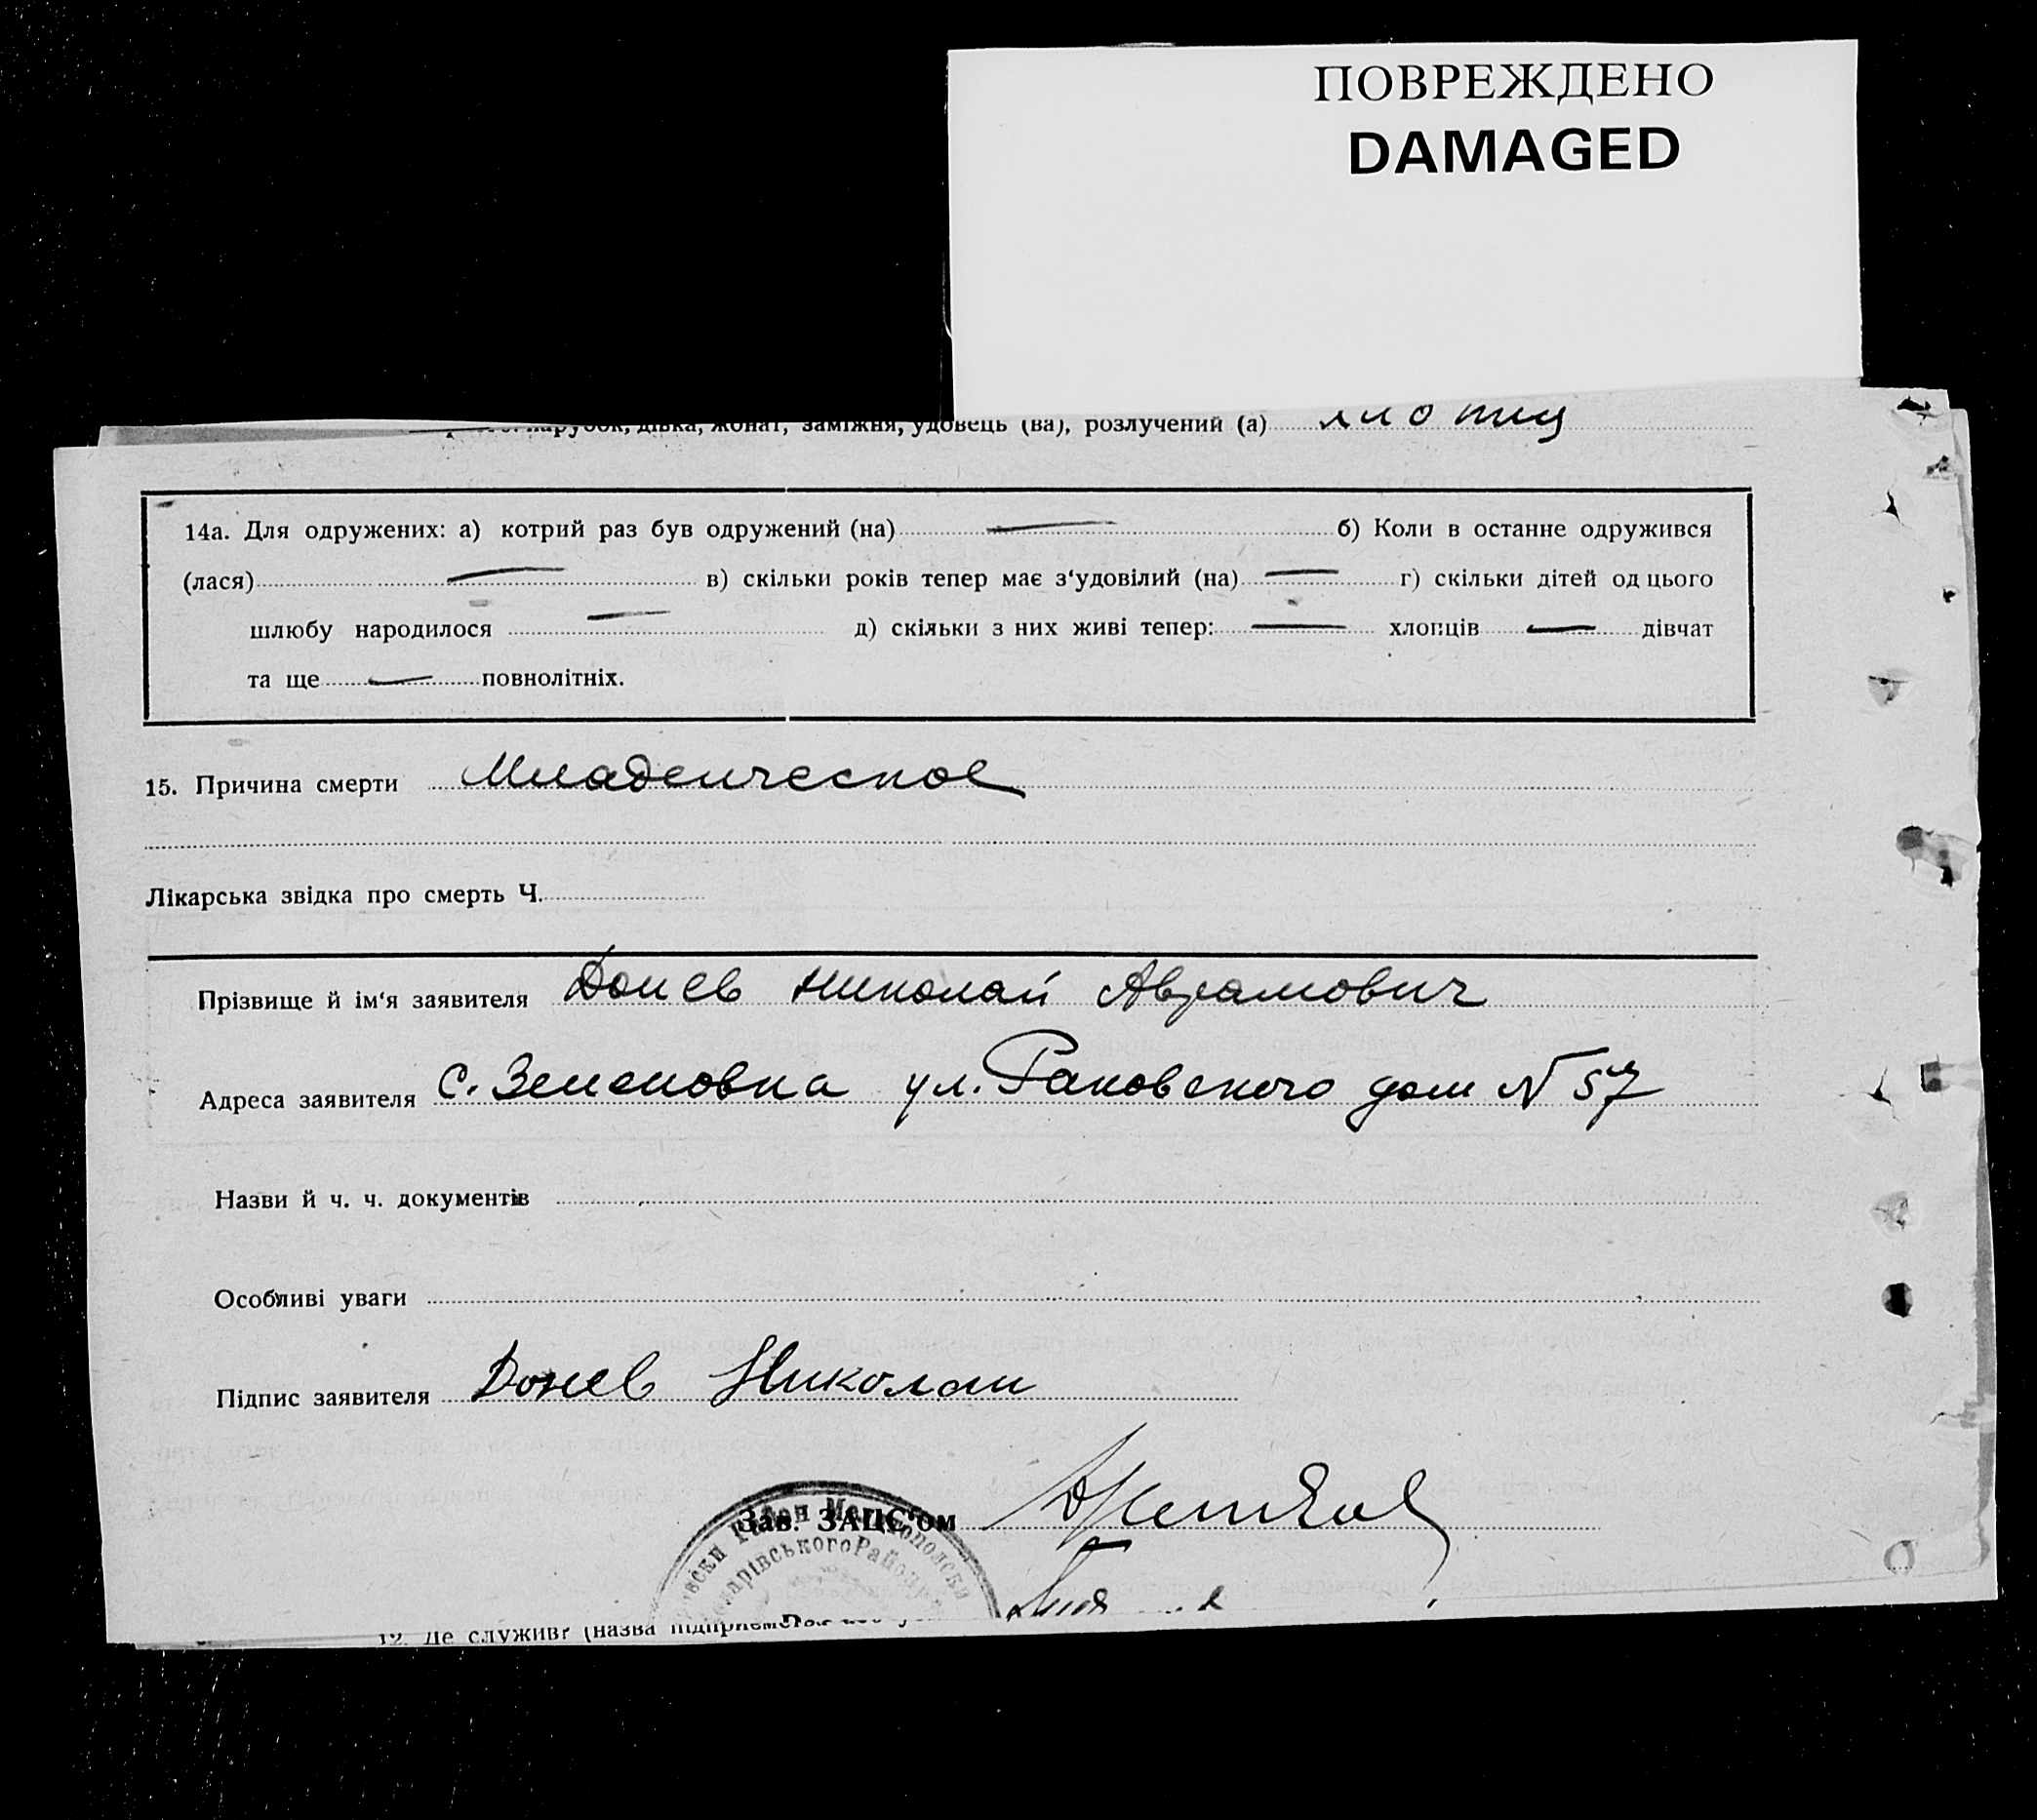 ПОВРЕЖДЕНО
DAMAGED
парубок, дівка, жонат, заміжня, удовець (ва), розлучений (а)
14а. Для одружених: а) котрий раз був одружений (на) — б) Коли в останнє одружився
(лася) — в) скільки років тепер має з‘удовілий (на) — г) скільки дітей од цього
шлюбу народилося — д) скільки з них живі тепер: — хлопців — дівчат
та ще — повнолітніх.
15. Причина смерти Младенческое
Лікарська звідка про смерть Ч.
Прізвище й ім‘я заявителя Донев Николай Аврамович
Адреса заявителя с. Зеленовка ул. Раковского дом N 57
Назви й ч. ч. документів
Особливі уваги
Підпис заявителя Донев Николай
Зав. ЗАЦС‘ом
12. Де служив (назва підприємства